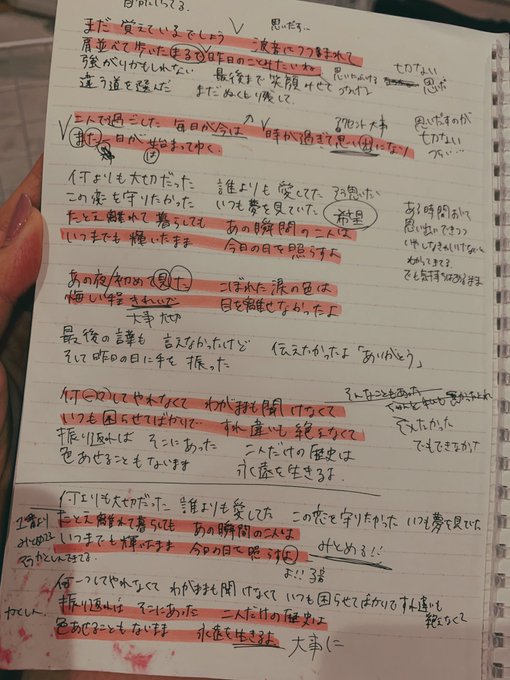 まだ 覚えているでしょう 波音につつまれて
思い出す…
肩並べて歩いた まるで昨日のこと
強がりかもしれない 最後まで 笑顔 みせて
違う道を選んだ まだぬくもり残して
切ない
二人で過ごした 毎日が今は 時が過ぎて思い出になり
アクセント大事
また 一日が 始まってゆく
思いだすのが
切ない
つらい…
何よりも大切だった 誰よりも愛してた
この恋を守りたかった いつも夢を見ていた 希望
たとえ離れて暮らしても あの瞬間の二人は
いつまでも輝いたまま 今日の日を照らすよ
わかってきてる
でも気持ちはあるまま
あの夜/初めて見た こぼれた涙の色は
悔しい程 きれいだ 目を離せなかったよ
大事 大切
最後の言葉も 言えなかったけど 伝えたかったよ「ありがとう」
そして昨日の日に手を振った
何一つしてやれなくて わがままも聞けなくて
そんなこともあった
いつも困らせてばかりで すれ違いも絶えなくて
伝えたかった
でもできなかった
振り返れば そこにあった 二人だけの歴史は
色あせることもないまま 永遠を生きるよ
何よりも大切だった 誰よりも愛してた この恋を守りたかった いつも夢を見ていた
1番より
たとえ離れて暮らしても あの瞬間の二人は
いつまでも輝いたまま 今日の日を照らすよ みとめる!!
何一つしてやれなくて わがままも聞けなくて いつも困らせてばかりで すれ違いも
絶えなくて
振り返れば そこにあった 二人だけの歴史は
色あせることもないまま 永遠を生きるよ 大事に